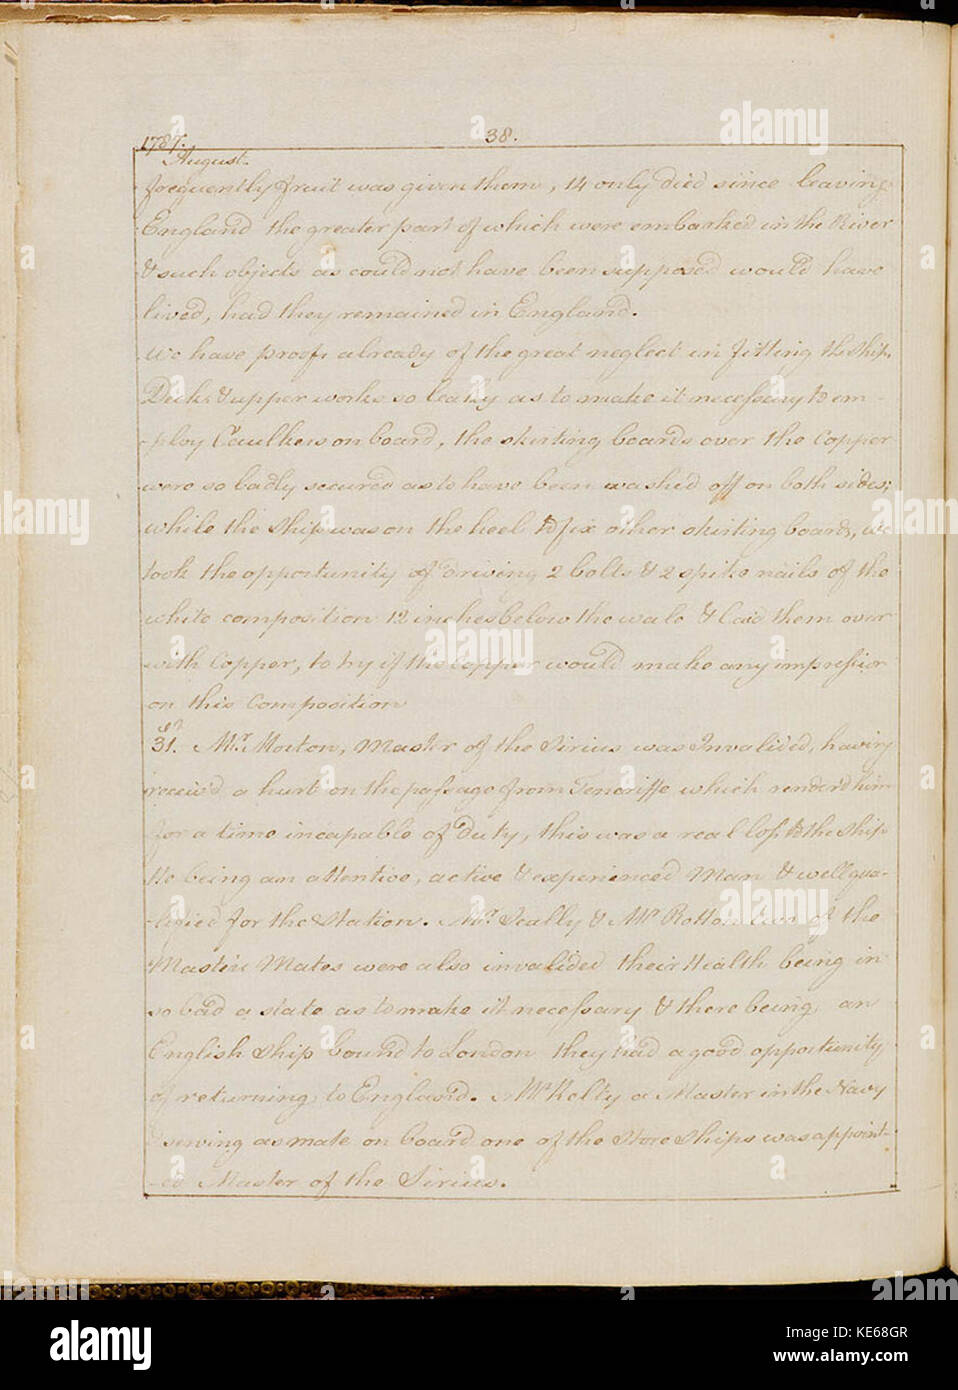 1787. 38.
August.
frequently fruit was given them, 14 only died since leaving
England the greater part of which were embarked in the River
& such objects as could not have been supposed would have
lived, had they remained in England.
We have proofs already of the great neglect in fitting the Ship,
Decks & upper works so leaky as to make it necessary to em-
-ploy Caulkers on board, the skirting boards over the Copper
were so badly secured as to have been washed off on both sides;
while the Ship was on the heel to fix other skirting boards, we
took the opportunity of driving 2 bolts & 2 spike nails of the
white composition 12 inches below the wale & laid them over
with Copper, to try if the Copper would make any impression
on this Composition
31. Mr. Morton, Master of the Sirius was Invalided, having
receiv'd a hurt on the passage from Teneriffe which render'd him
for a time incapable of duty, this was a real loss to the Ship
He being an attentive, active & experienced Man & well qua-
-lified for the Station. Mr. Seally & Mr Rotton two of the
Masters Mates were also invalided their Health being in
so bad a state as to make it necessary & there being an
English Ship bound to London they had a good opportunity
of returning to England. Mr Kelty a Master in the Navy
& serving as mate on board one of the Store Ships was appoint-
-ed Master of the Sirius.
alamy stock photo
alamy
KE68GR
www.alamy.com